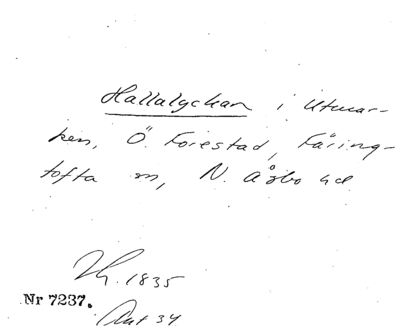 Hallalyckan i Utmar-
ken, Ö. Forestad, Färing-
tofta sn, N. Åsbo hd
1835
Nr 7237.
Akt 34